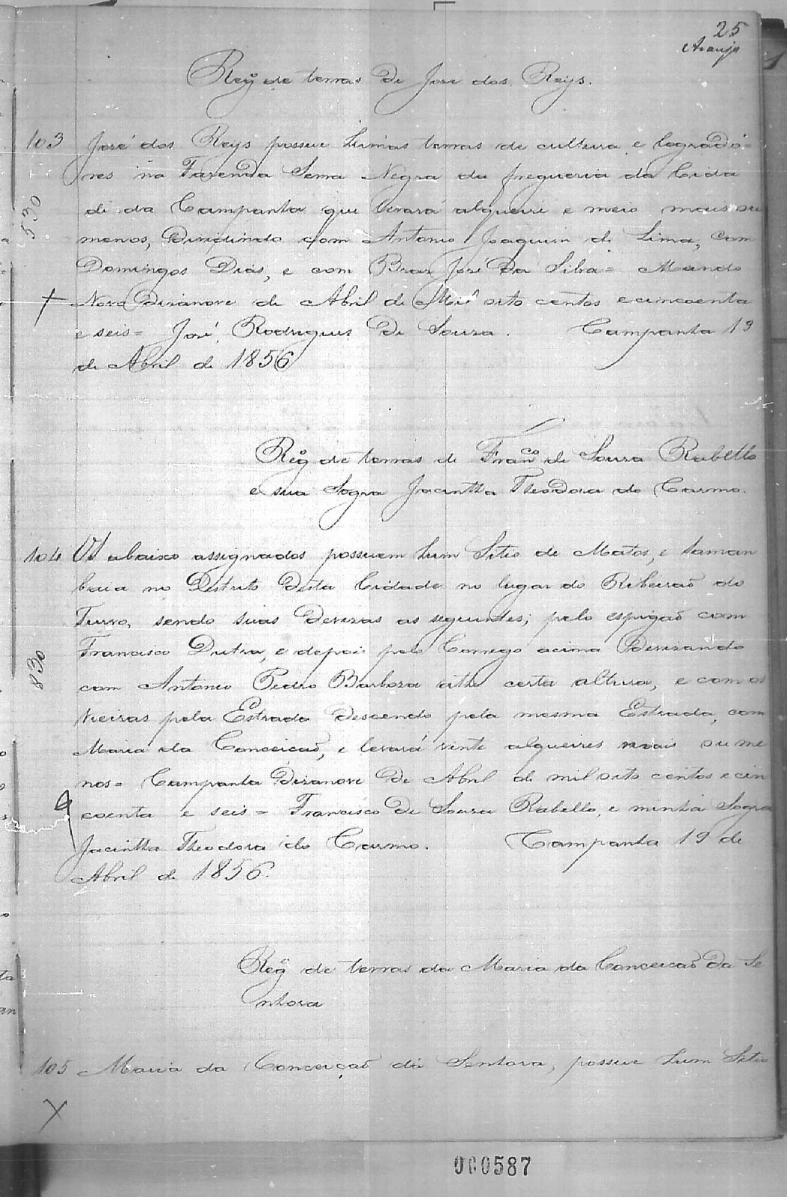 25
Araujo
Regº de terras de José dos Reys.
103 José dos Reys possue humas terras de cultura e logrado-
res na Fazenda Serra Negra da freguesia da Cida
de da Campanha que levará alqueire e meio mais ou
menos, dividindo com Antonio Joaquim de Lima, com
Domingos Dias, e com Bras José da Silva =
Dezanove de Abril de Mil oito centos e cincoenta
e seis = José Rodrigues de Souza. Campanha 19
de Abril de 1856
530
Regº de terras de Franco de Souza Rabello
e sua Sogra Jacintha Theodora do Carmo.
104 Os abaixo assignados possuem hum Sitio de Matos, e Saman
baia no Destrito desta Cidade no lugar do Ribeirão do
Turvo, sendo suas devizas as seguintes; pelo espigão com
Francisco Dutra, e depois pelo Corrego acima devizando
com Antonio Pedro Barboza athe certa altura, e com os
Vieiras pela Estrada descendo pela mesma Estrada, com
Maria da Conceicão, e levará vinte alqueires mais ou me
nos = Campanha Dezanove de Abril de mil oito centos e cin
coenta e seis = Francisco de Souza Rabello, e minha Sogra
Jacintha Theodora do Carmo. Campanha 19 de
Abril de 1856.
830
Regº de terras da Maria da Conceicão da Se
nhora
105 Maria da Conceição da Senhora, possue hum Sitio
000587